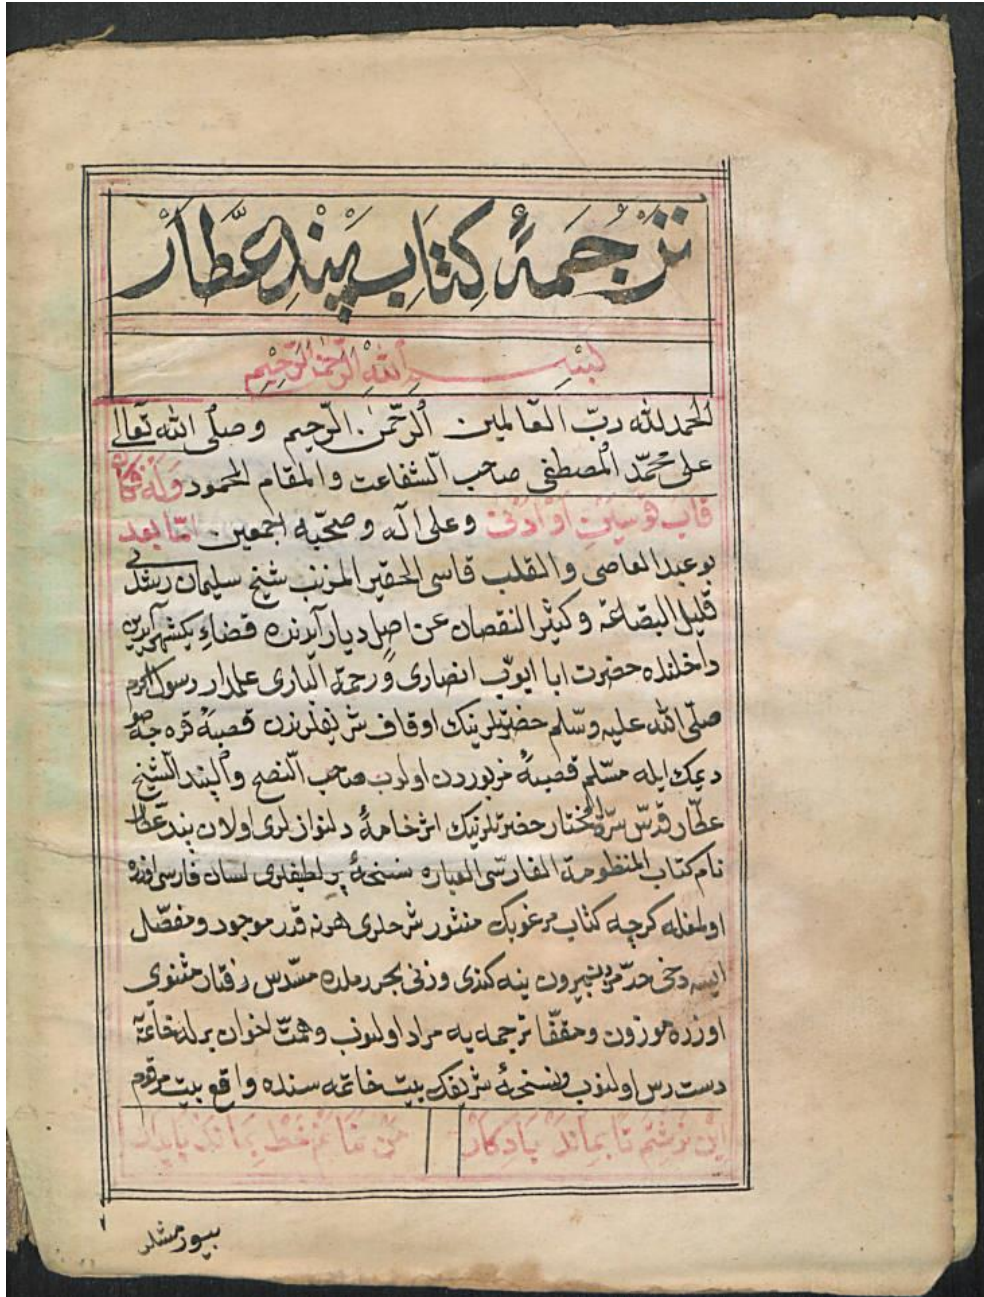 ترجمهٔ كتاب پند عطار
بسم الله الرحمن الرحيم
الحمد لله ربّ العالمين الرّحمن الرّحيم وصلّى الله تعالى
على محمّد المصطفى صاحب الشفاعت والمقام المحمود وله فكان
قاب قوسين او ادنى وعلى آله وصحبه اجمعين امّا بعد
بو عبد العاصى والقلب قاسى الحقير المذنب شيخ سليمان رشدى
قليل البضاعة وكثير النقصان عن اصل ديار آيدنده قضاءِ يكيشهر آيدين
داخلنده حضرت ابا ايوّب انصارى ورحمة البارى علمدار رسول اكرم
صلّى الله عليه وسّلم حضرتلرينك اوقاف شريفلرندن قصبهٔ قره جه صو
ديمك ايله مسّلم قصبهٔ مزبوردن اولوب صاحب النّصح والپند الشّيخ
عطّار قدّس سرّه المختار حضرتلرينك اثر خامهٔ دلنوازلرى اولان پند عطار
نام كتاب المنظومة الفارسّى العباره نسخهٔ پر لطيفلرى لسان فارسى اوزره
اولمغله كرچه كتاب مرغوبك منثور شرحلرى هرنه قدر موجود ومفصّل
ايسه دخى ينه كندى وزنى بحر رملده مسّدس رفتار مثنوى
اوزره موزون ومقفّا ترجمه يه مراد اولنوب وهمّت اخوان برله خاتمه
دست رس اولنوب ونسخهٔ شريفك بيت خاتمه سنده واقع بيت مرقوم
اين نوشتم تا بماند يادكار من نمانم خط بماند پايدار